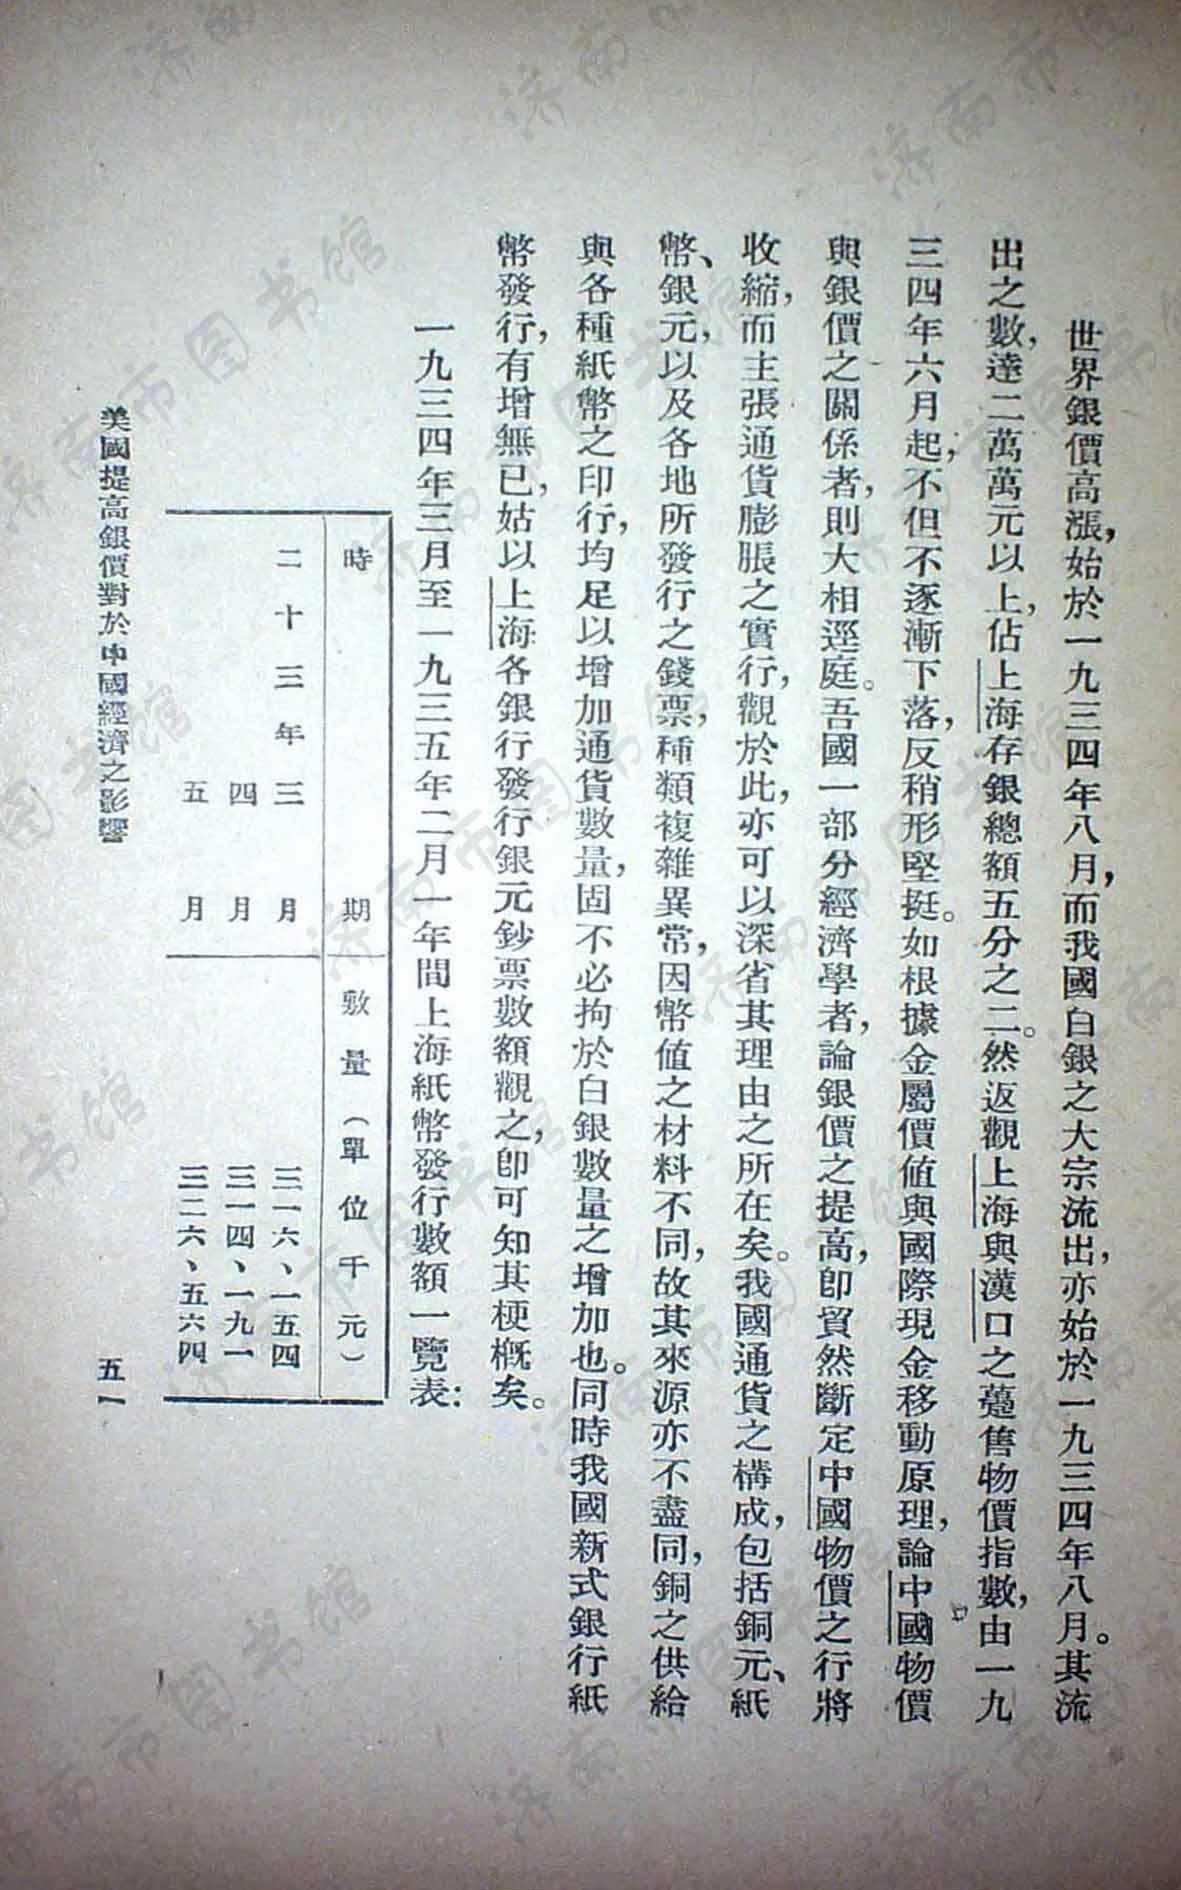 世界銀價高漲，始於一九三四年八月，而我國白銀之大宗流出，亦始於一九三四年八月。其流
出之數，達二萬萬元以上，佔上海存銀總額五分之二。然返觀上海與漢口之躉售物價指數，由一九
三四年六月起，不但不逐漸下落，反稍形堅挺。如根據金屬價值與國際現金移動原理，論中國物價
與銀價之關係者，則大相逕庭。吾國一部分經濟學者，論銀價之提高，卽貿然斷定中國物價之行將
收縮，而主張通貨膨脹之實行，觀於此，亦可以深省其理由之所在矣。我國通貨之構成，包括銅元、紙
幣、銀元，以及各地所發行之錢票，種類複雜異常，因幣值之材料不同，故其來源亦不盡同，銅之供給
與各種紙幣之印行，均足以增加通貨數量，固不必拘於白銀數量之增加也。同時我國新式銀行紙
幣發行，有增無已，姑以上海各銀行發行銀元鈔票數額觀之，卽可知其梗概矣。
一九三四年三月至一九三五年二月一年間上海紙幣發行數額一覽表：
時期 數量（單位千元）
二十三年三月 三一六、一五四
四月 三一四、一九一
五月 三二六、五六四
美國提高銀價對於中國經濟之影響
五一
济南市图书馆